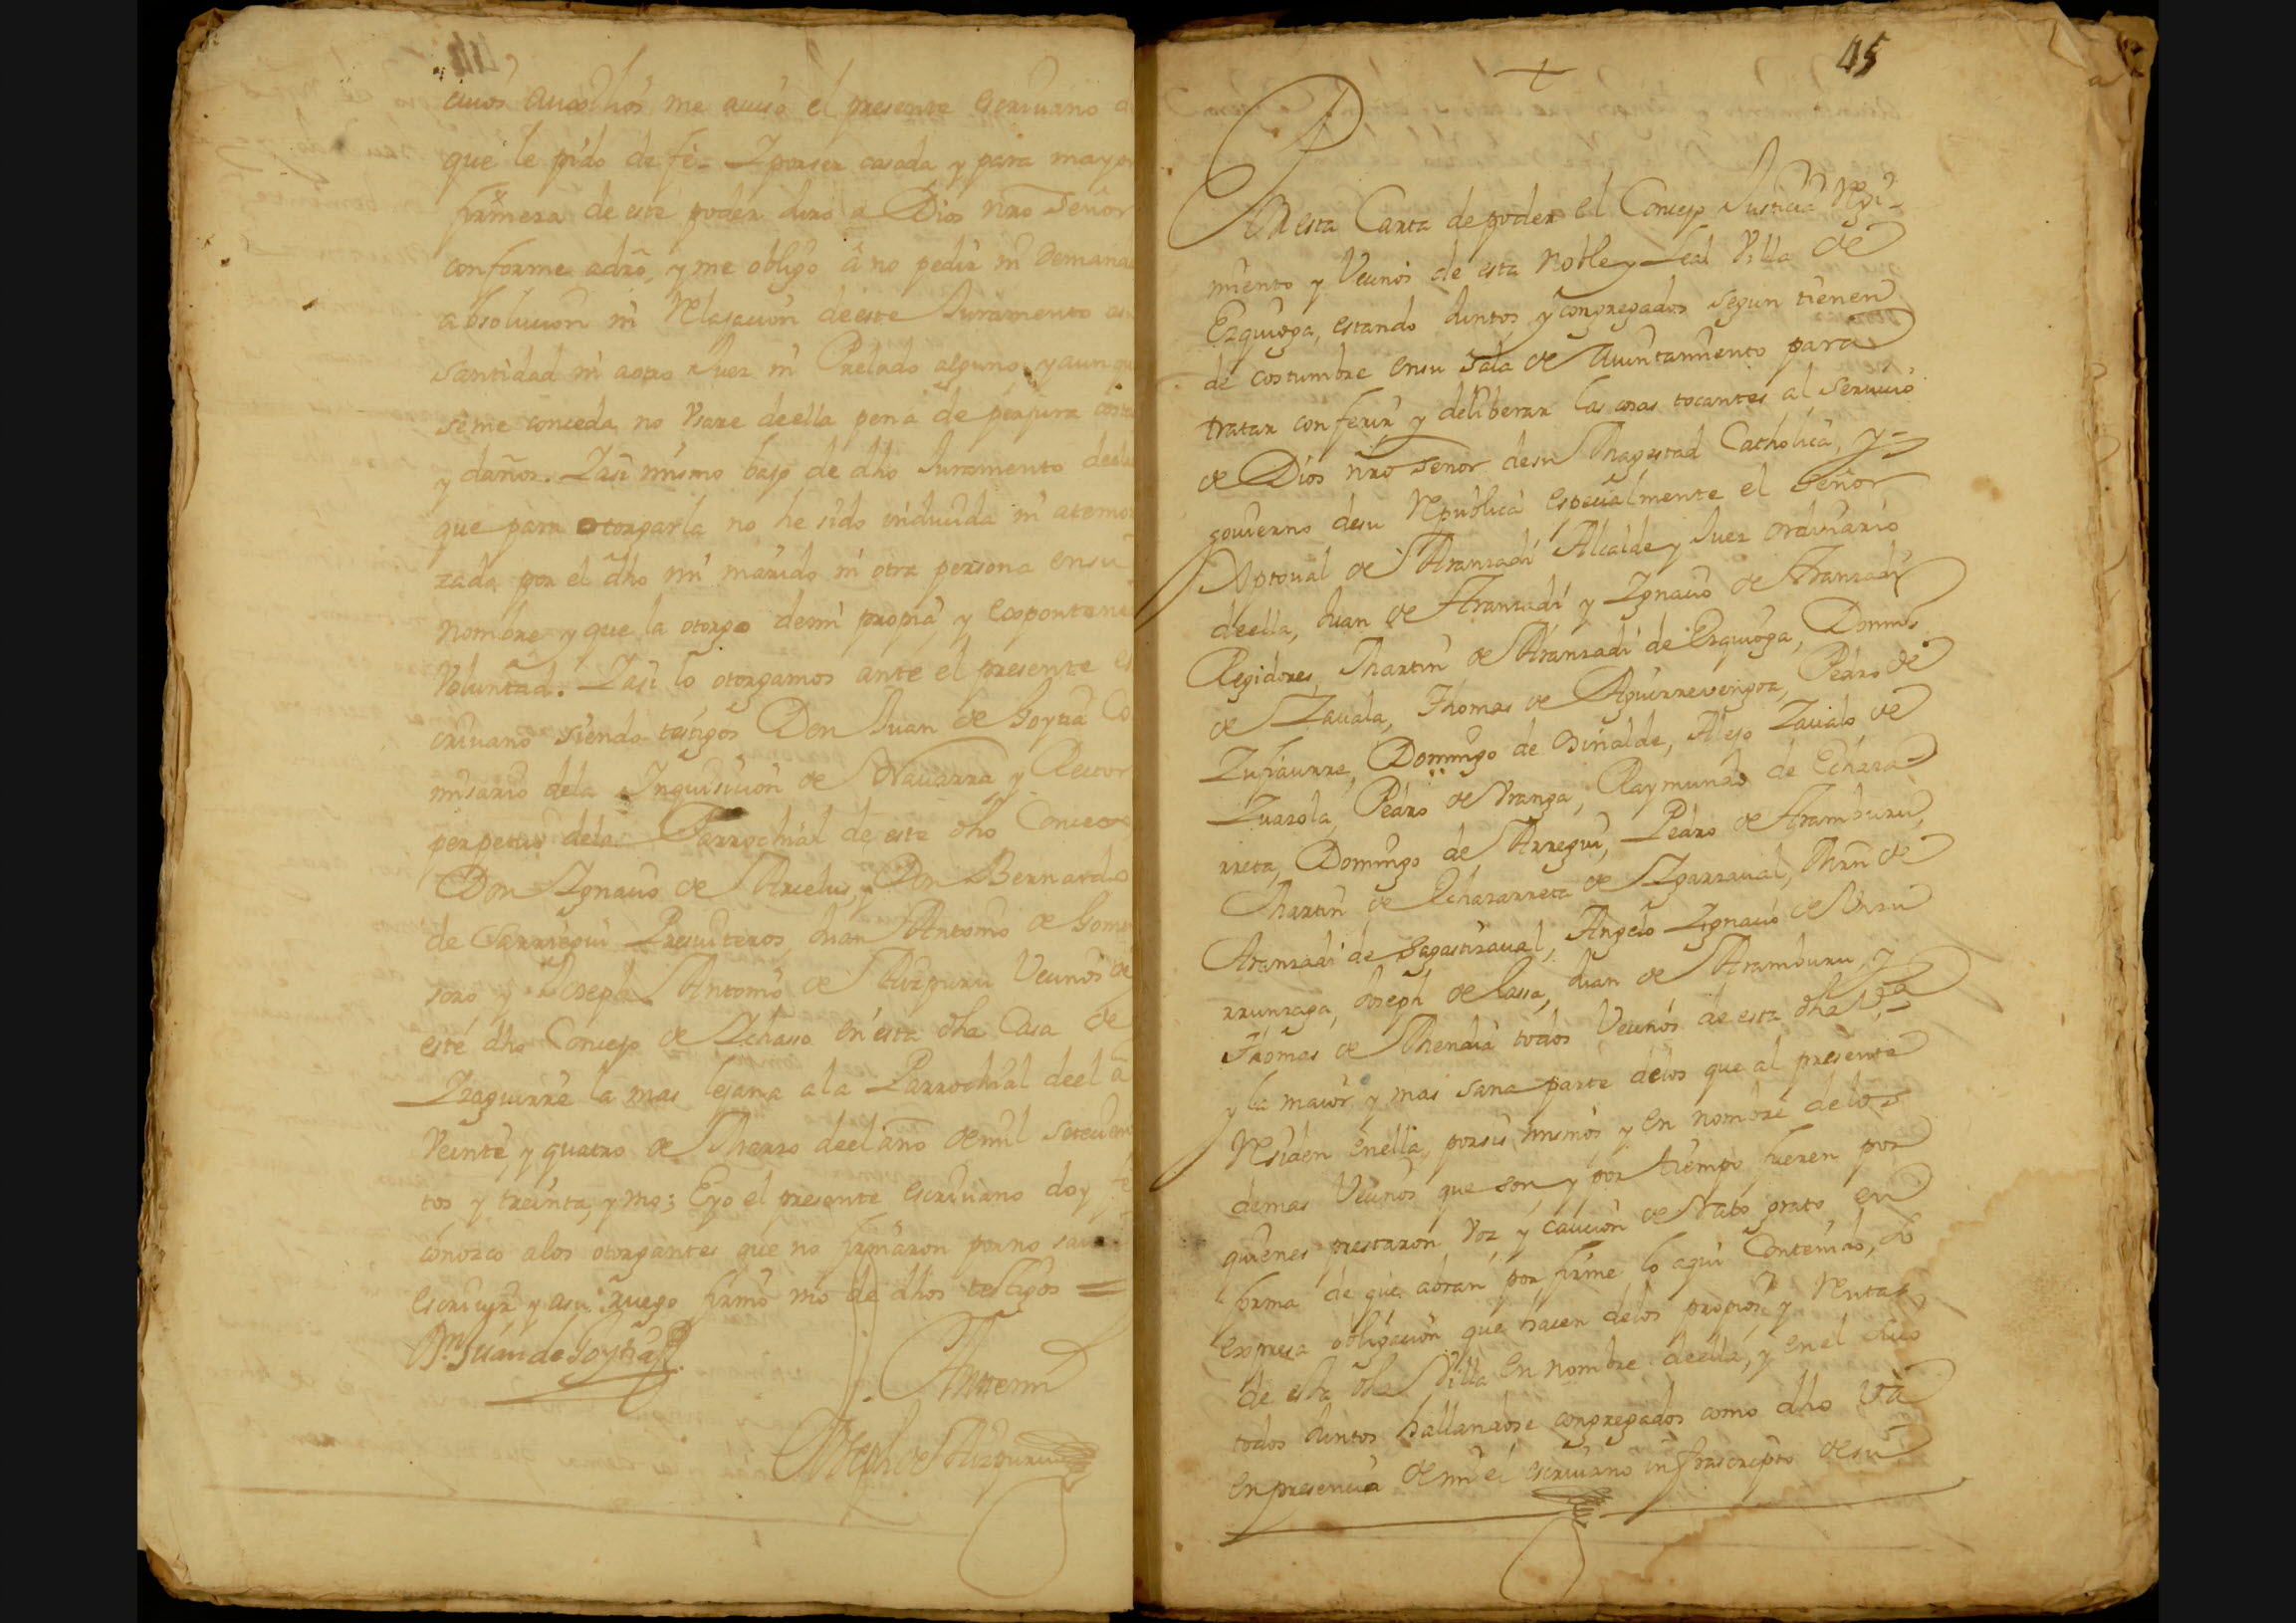 cuos auxilios me auisó el presente escriuano
que le pido de fe = Y por ser casada, y para mayor
firmeza de este poder Juro a Dios nro señor
conforme adro, y me obligo â no pedir ni Demandar
absolucion ni Relaxacion de este Juramento asu
santidad ni aotro Juez ni Prelado alguno, y aunque
se me conceda no Vsare de ella pena de perjura costas
y daños. Y asi mismo bajo de dho Juramento
que para otorgarla no he sido inducida ni atemori
zada por el dho mi marido ni otra persona ensu
nombre y que la otorgo demi propia, y Expontanea
Voluntad. Y asi lo otorgamos ante el presente es
criuano siendo testigos Don Juan de Goytia Co
misario dela Inquisicion de Nauarra, y Rector
perpetuo dela Parrochial de este dho Concejo
Don Ignacio de Arcelus, y Don Bernardo
de Sarriegui Presuiteros, Juan Antonio de
soro y Joseph Antonio de Aizpuru Vecinos de
este dho Concejo de Ychasso en esta dha Casa de
Yzaguirre la mas lejana ala Parrochial de el a
Veinte, y quatro de Marzo de el año de mil setecien
tos y treinta, y Vno; E yo el presente escriuano doy fe
conozco alos otorgantes que no firmaron por no sauer
escriuir, y asu ruego firmó vno de dhos testigos =
Dn. Juan de Goytia
Antemi
Joseph de Aizpuru
45
En esta Carta de poder el Concejo Justicia Regi-
miento y Vecinos de esta Noble y Leal Villa de
Ezquioga, estando Juntos y congregados segun tienen
de costumbre ensu Sala de Auuntamiento para
tratar conferir y deliberar las cosas tocantes al seruicio
de Dios nro señor desu Magestad Catholica, y =
gouierno desu Republica especialmente el Señor
Xptoual de Aranzadi Alcalde y Juez ordinario
deella, Juan de Aranzadi y Ygnacio de Aranzadi
Regidores, Martin de Aranzadi de Ezquioga, Domingo
de Zauala, Thomas de Aguirrevengoa, Pedro de
Zufiaurre, Domingo de Oinalde, Alejo Zavalo de
Zuazola, Pedro de Vranga, Raymundo de Echeza-
rreta, Domingo de Arregui, Pedro de Aramburu,
Martin de Echezarreta de Ygarzaual, Mrn de
Aranzadi de Sagastizaual, Angelo Ygnacio de
rrunzaga, Joseph de Lassa, Juan de Aramburu, y
Thomas de Mendia todos Vecinos de esta dha Va
y la maior y mas sana parte delos que al presente
Residen en ella, porsi mismos y en nombre delos
demas Vecinos que son y por tiempo fueren por
quienes prestaron Voz, y caucion de Rato grato en
forma de que abran por firme lo aqui Contenido, so
expresa obligacion que hacen delos propios y Rentas
de esta dha Villa en nombre deella, y en el suio
todos Juntos hallandose congregados como dho vâ
enpresencia de mi el escriuano infrascripto desu